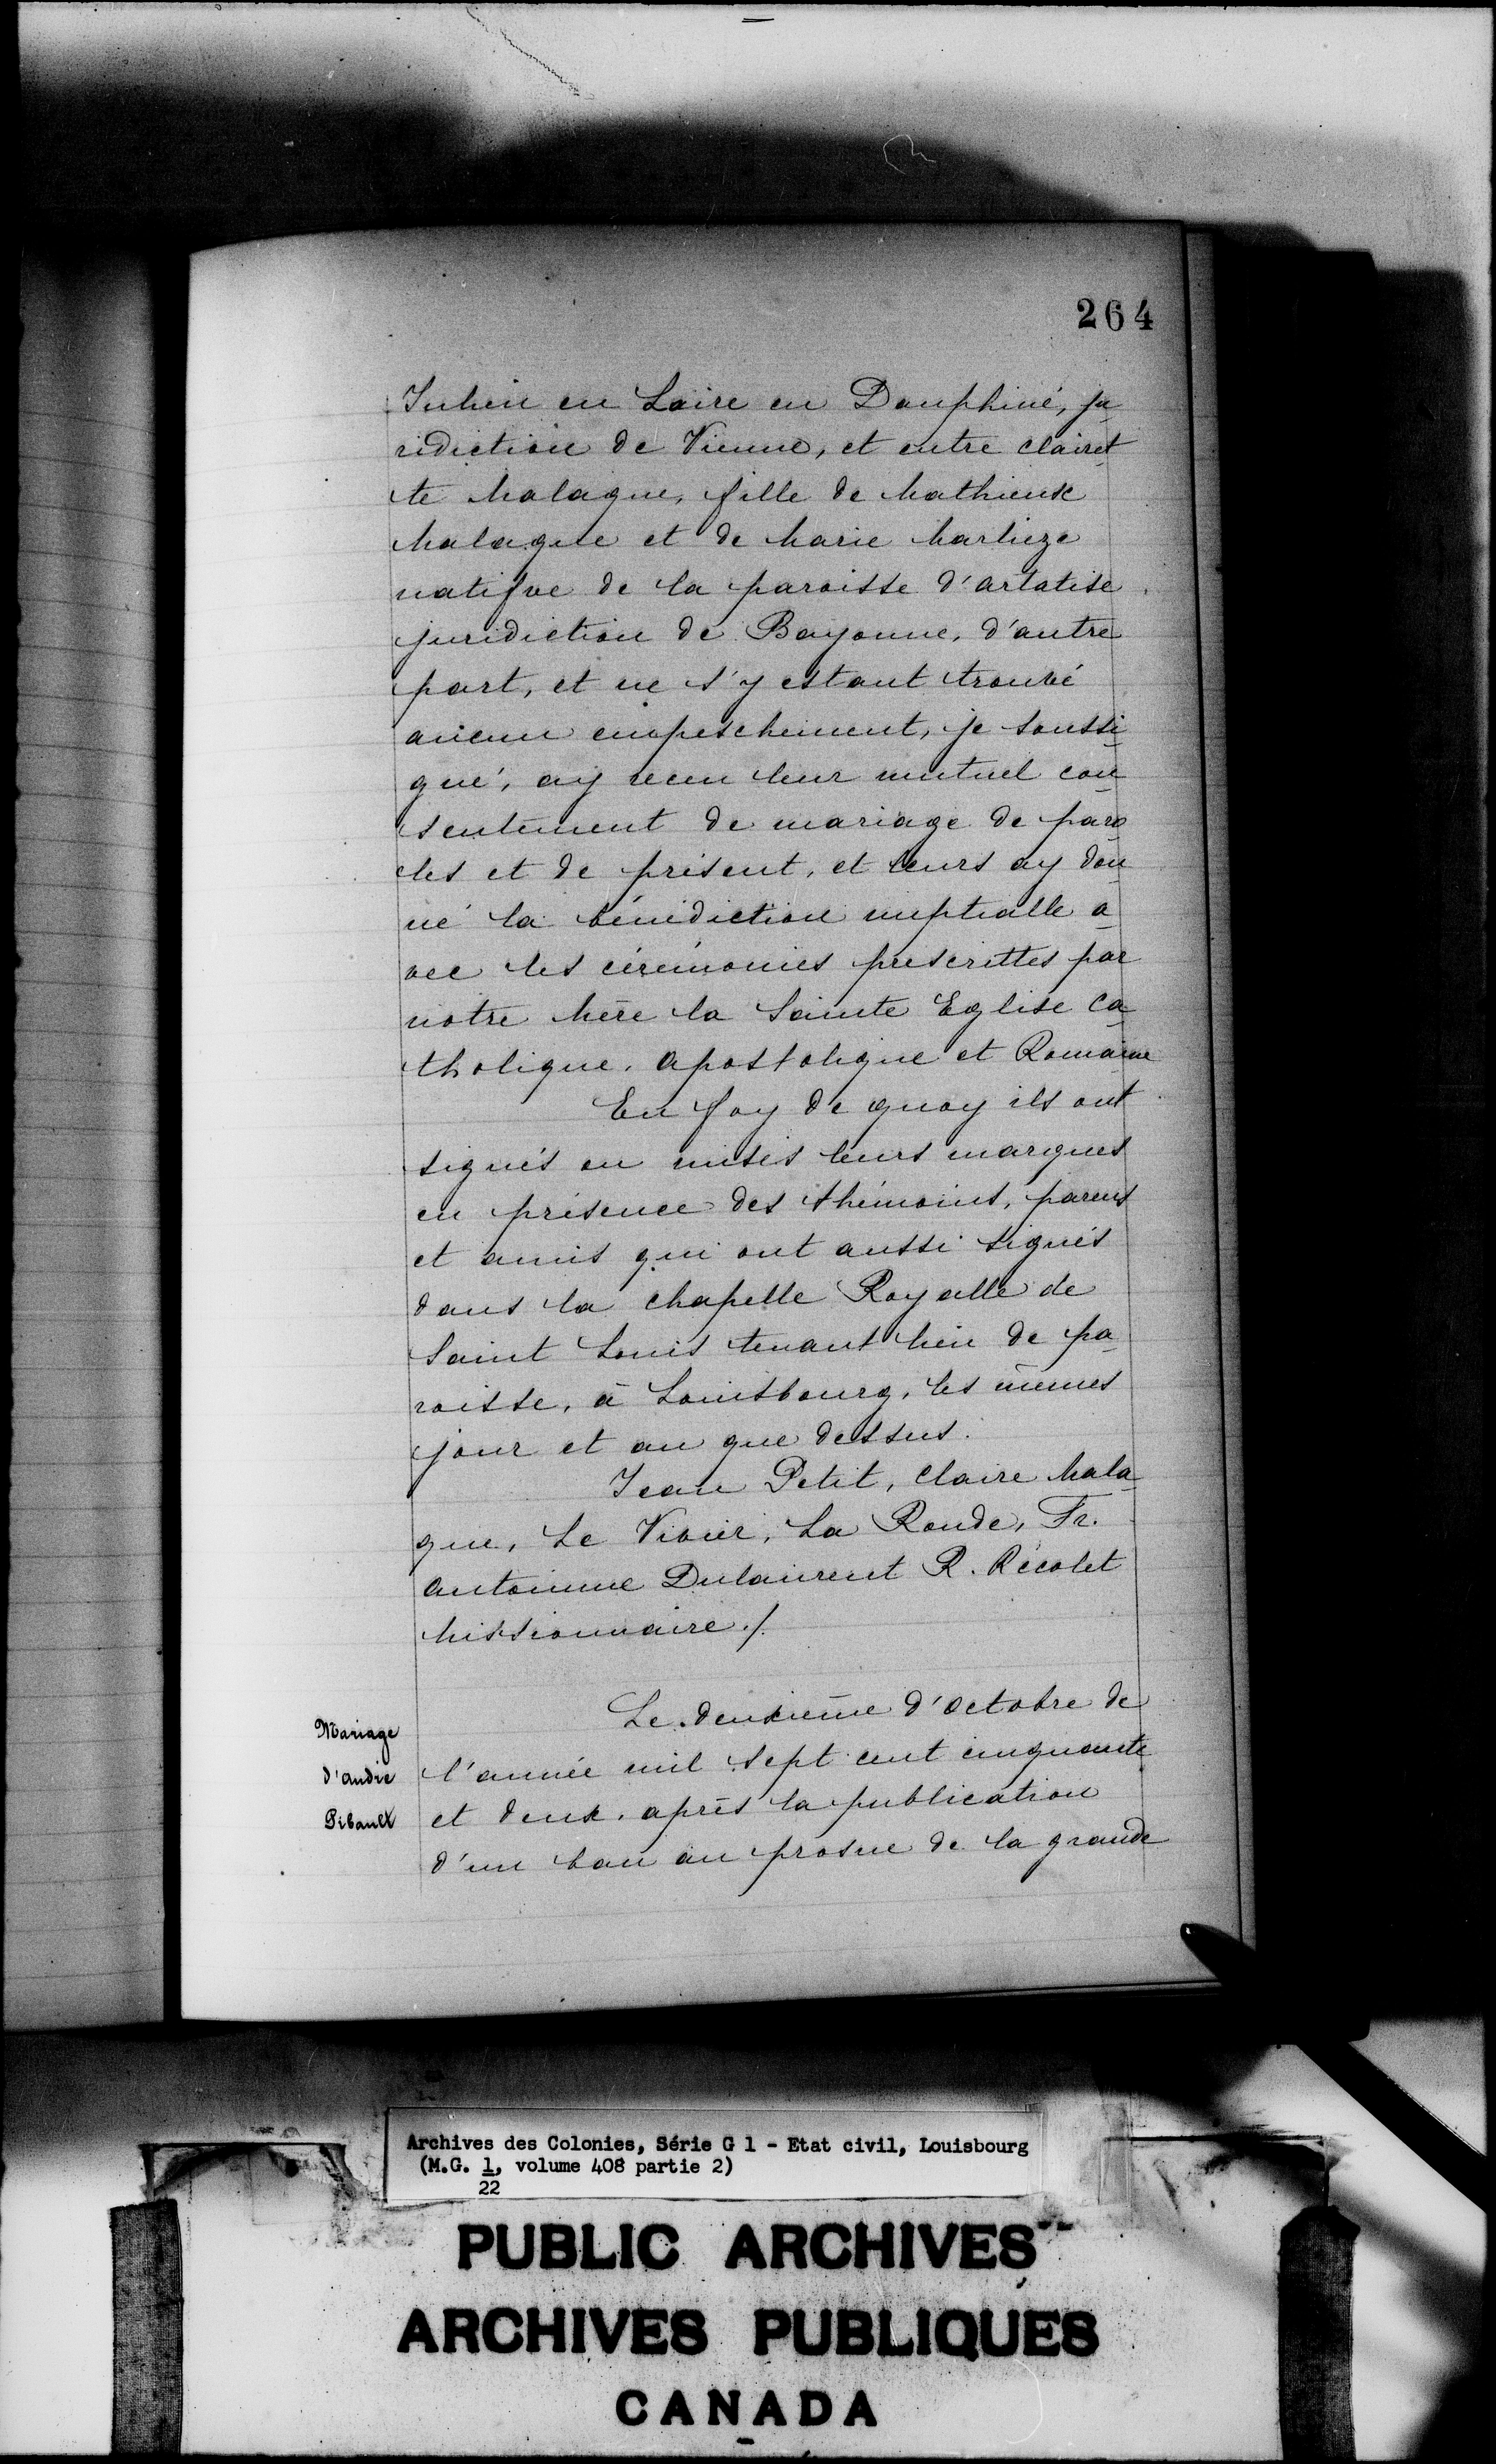 264
Julien en Loire en Dauphiné, ju
ridiction de Vienne, et entre clairet
te Malaque, fille de Mathieux
Malaque et de Marie Marlieze
natifve de la paroisse d'artatise
juridiction de Bayonne, d'autre
part, et ne s'y estant trouvé
aucun empeschement, je soussi
gné, ay receu leur mutuel con
sentement de mariage de paro
les et de présent, et leurs ay don
né la bénédiction nuptialle a
vec les cérémonies prescrittes par
notre Mère la Sainte Eglise Ca
tholique, apostolique et Romaine
En foy de quoy ils ont
signés ou mises leurs marques
en présence des thémoins, parens
et amis qui ont aussi signés
dans la chapelle Royalle de
Saint Louis tenant lieu de pa
roisse, à Louisbourg, les mêmes
jour et an que dessus.
Jean Petit, Claire Mala
que, Le Vivier, La Ronde, Fr.
antoinne Dulaurent R. Récolet
Missionnaire ./.
Mariage
d'andré
Pibault
Le deuxième d'octobre de
l'année mil sept cent cinquante
et deux, après la publication
d'un ban au prosne de la grande
Archives des Colonies, Série G 1 - Etat civil, Louisbourg
(M.G. 1, volume 408 partie 2)
22
PUBLIC ARCHIVES
ARCHIVES PUBLIQUES
CANADA